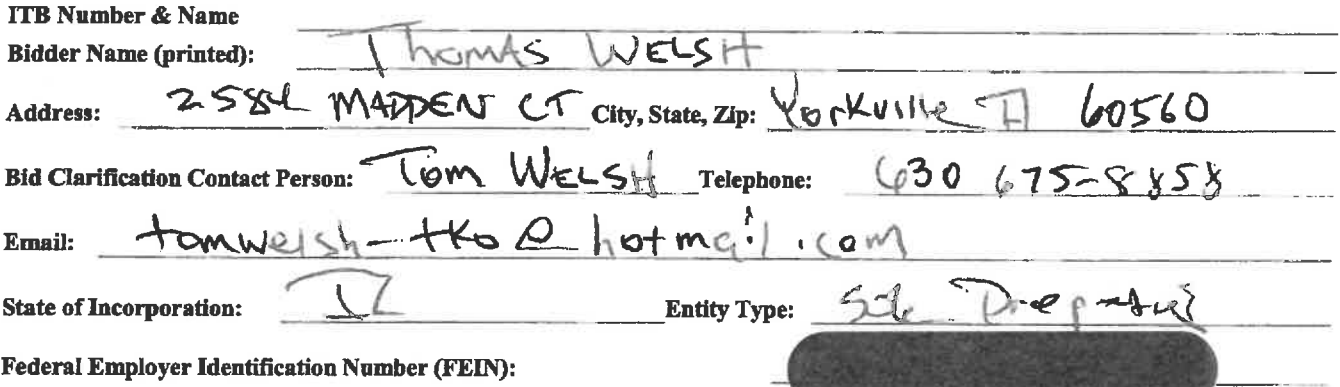 ITB Number & Name
Bidder Name (printed): Thomas WELSH
Address: 2584 MADDEN CT City, State, Zip: Yorkville Il 60560
Bid Clarification Contact Person: Tom WELSH Telephone: 630 675-8858
Email: tomwelsh-tko@hotmail.com
State of Incorporation: IL Entity Type: Sole
Federal Employer Identification Number (FEIN):